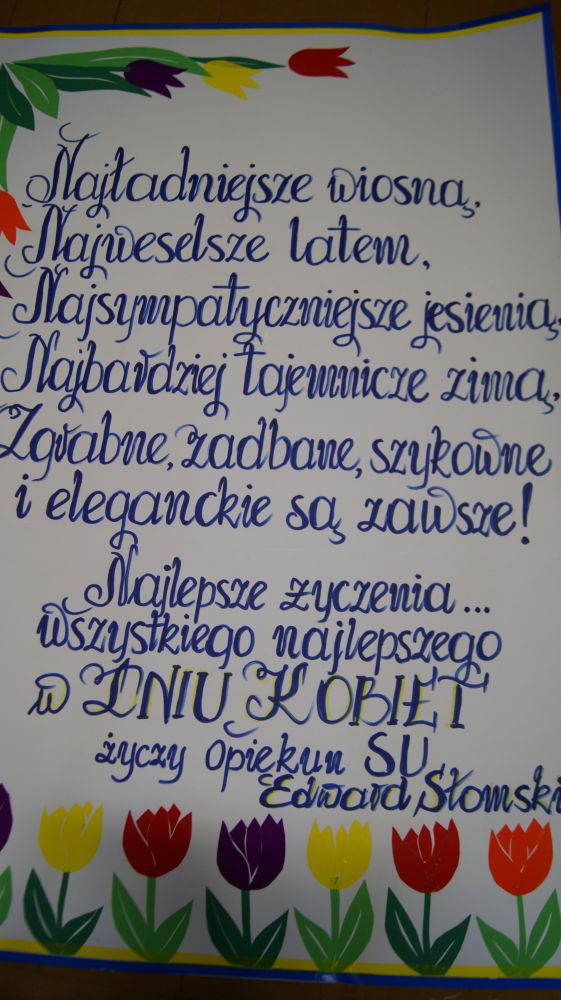 Najładniejsze wiosną,
Najweselsze latem,
Najsympatyczniejsze jesienią,
Najbardziej tajemnicze zimą,
Zgrabne, zadbane, szykowne
i eleganckie są zawsze!
Najlepsze życzenia...
wszystkiego najlepszego
w DNIU KOBIET
życzy opiekun SU
Edward Słomski